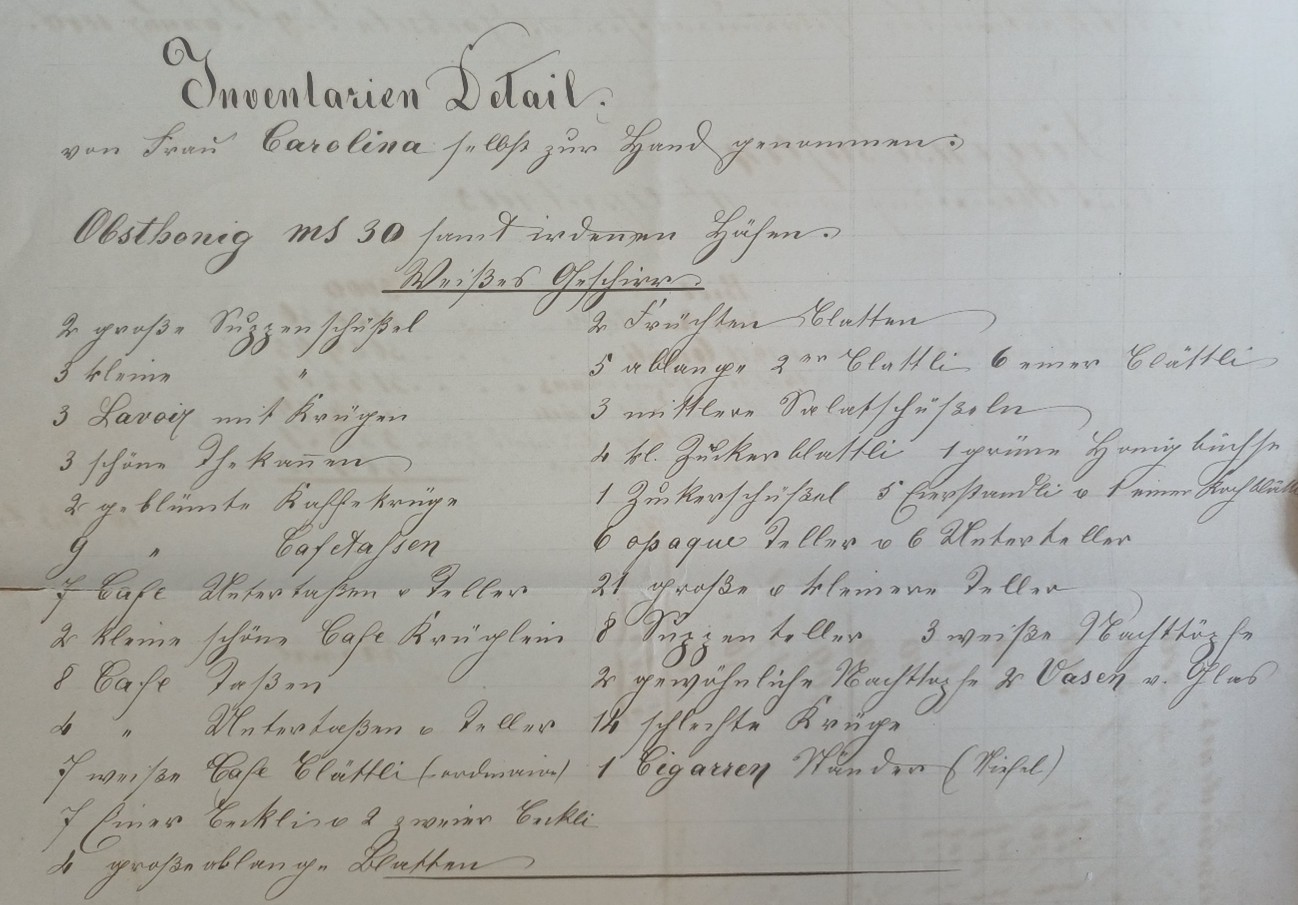 Inventarien Detail.
von Frau Carolina selbst zur Hand genommen.
Obsthonig ms 30 samt irdenen Häfen.
Weißes Geschirr
2 große Suppenschüßel
3 kleine "
3 Lavoir mit Krügen
3 schöne Thekanen
2 geblümte Kaffekrüge
9 " Cafetassen
7 Cafe Untertaßen o Teller
2 kleine schöne Cafe Krüglein
8 Cafe Taßen
4 " Untertaßen o Teller
7 weiße Cafe Blättli (ordinaire)
7 Einer Beckli o 2 zweier Beckli
4 große ablange Blatten
2 Früchten Blatten
5 ablange 2er Blattli 6 einer Blättli
3 mittlere Salatschüßeln
4 kl. Zuckerblattli 1 grüne Honigbüchse
1 Zukerschüßel 5 Eierstandli o 1 einer Kochblättli
6 opaque Teller o 6 Unterteller
21 große o kleinere Teller
8 Suppenteller 3 weiße Nachttöpfe
2 gewöhnliche Nachttopfe 2 Vasen v. Glas
14 schlechte Krüge
1 Cigarren Ständer (Stiefel)